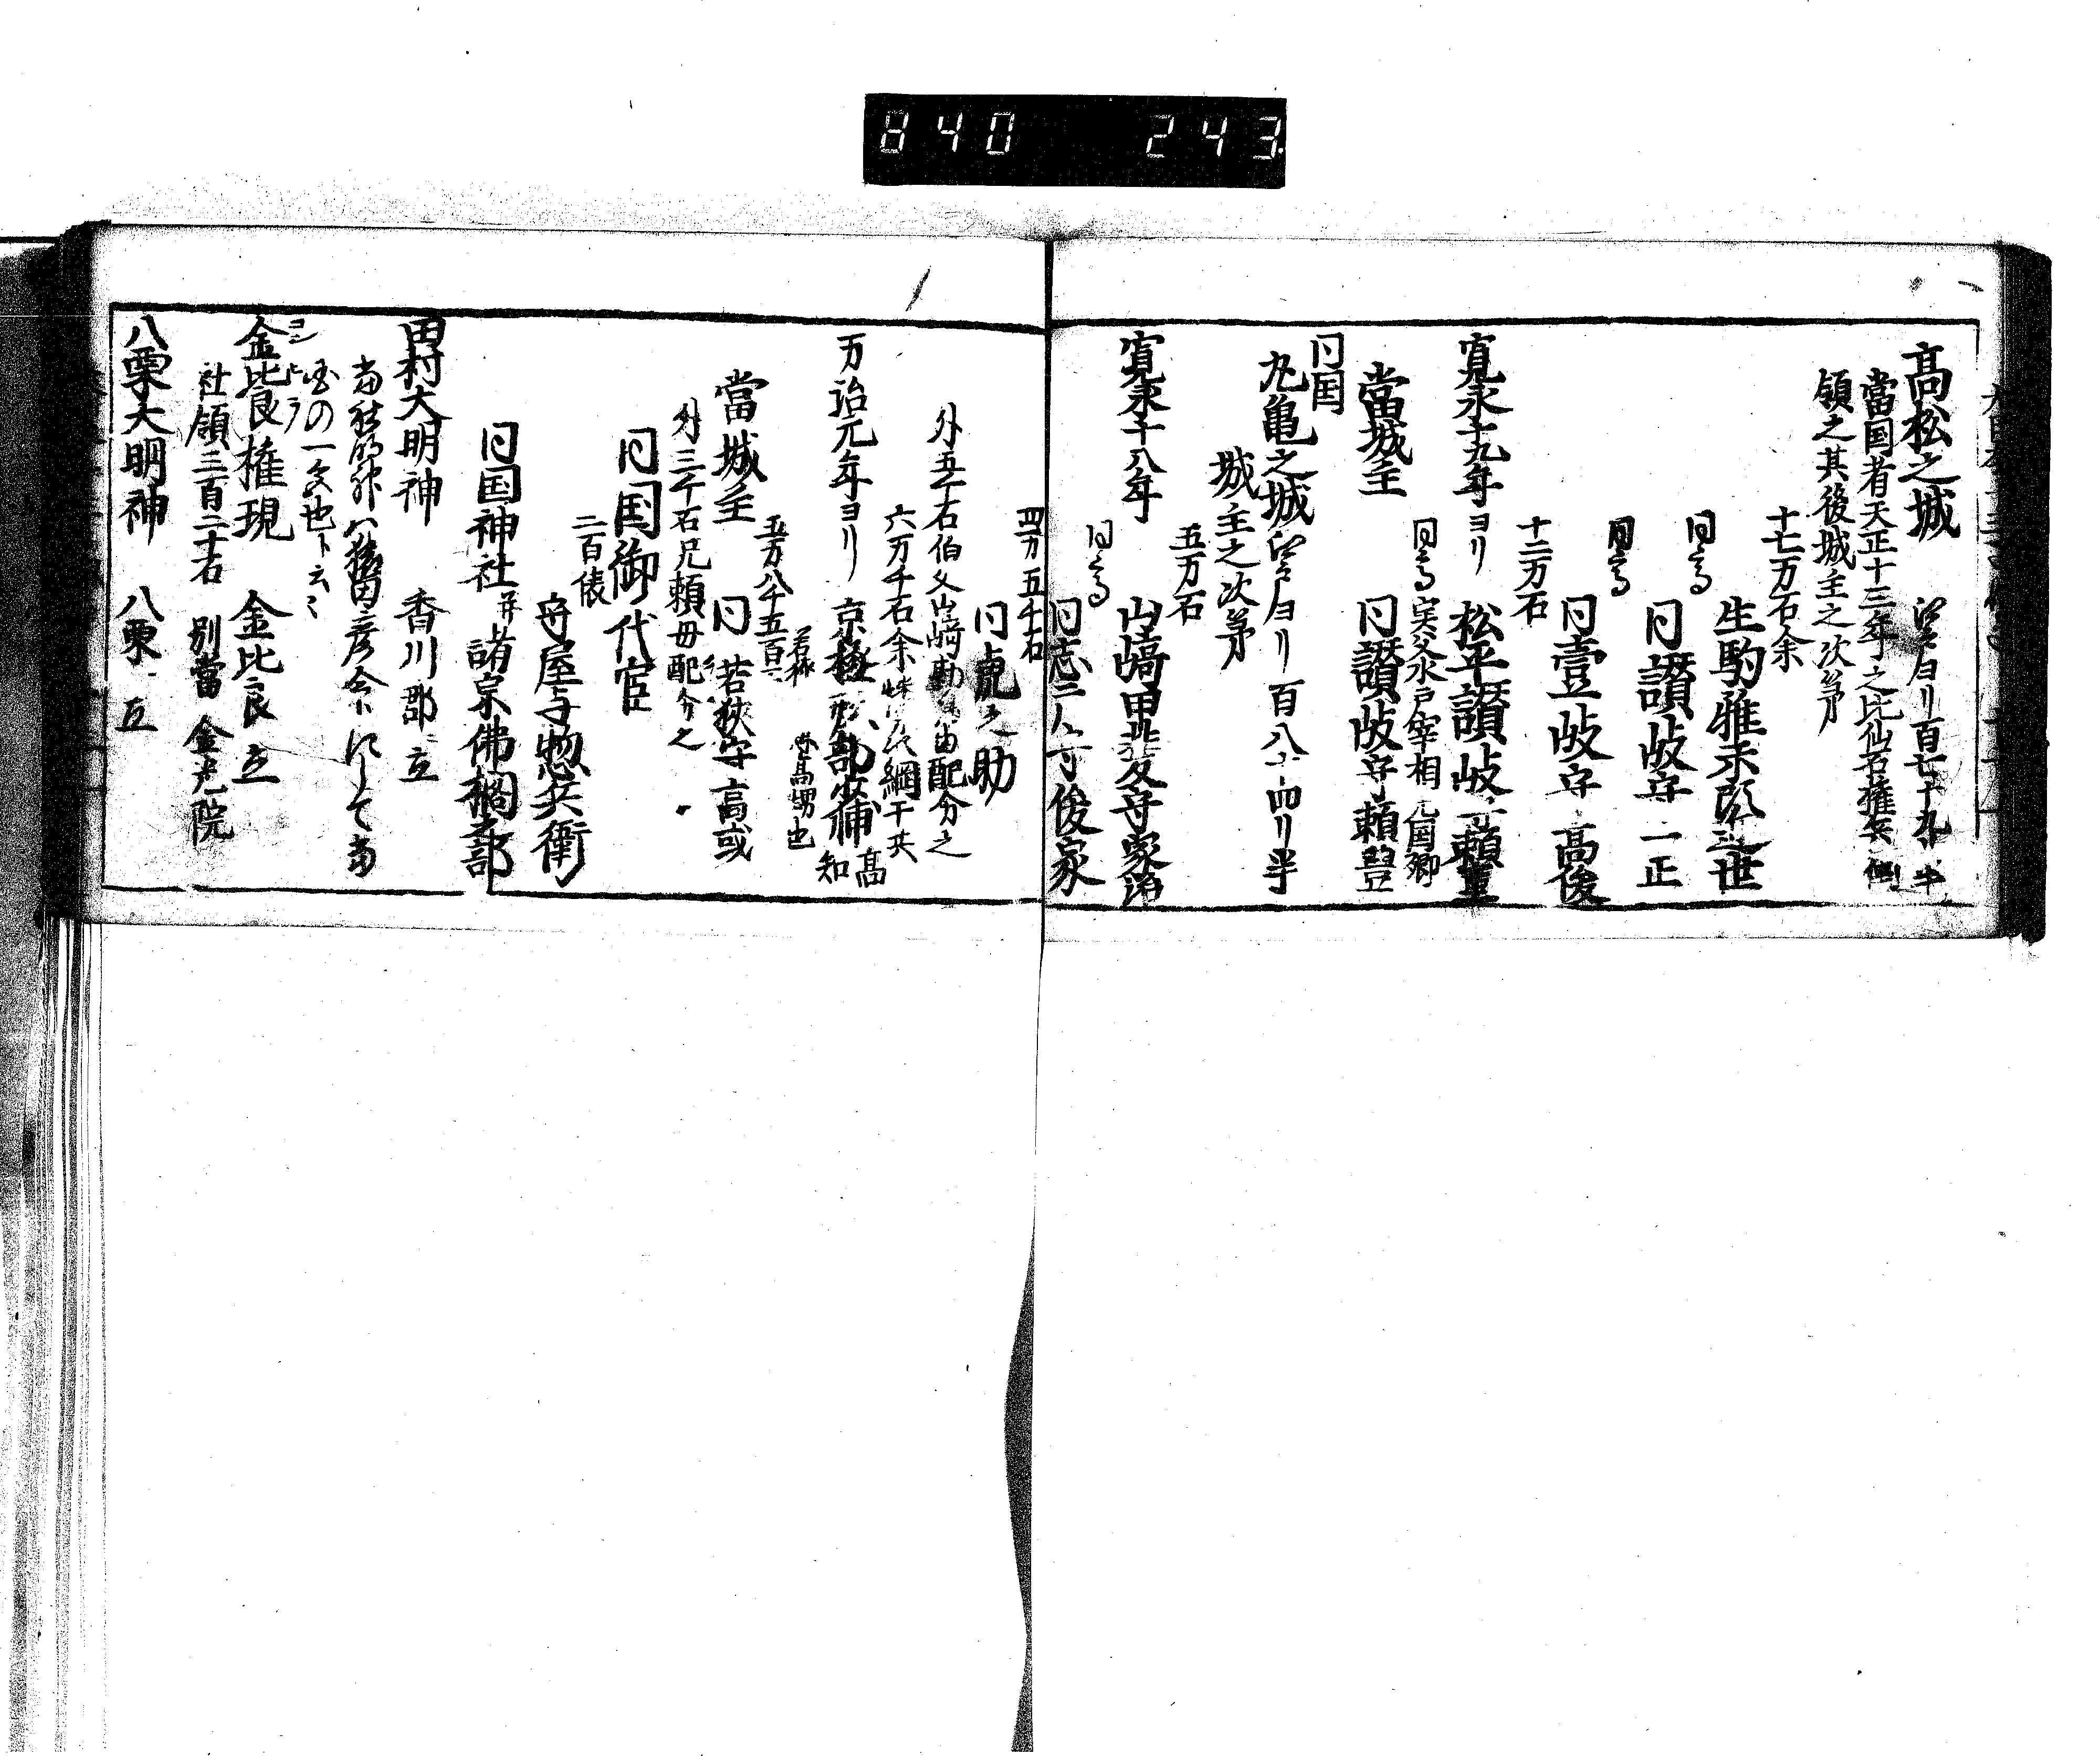 840 243
高松之城 江戸ヨリ百七十九リ半
當国者天正十三年之比仙石権兵衛
領之其後城主之次第
十七万石余
生駒雅楽頭近世
同高
同讃岐守一正
同高
同壹岐守高俊
十二万石
寛永十九年ヨリ 松平讃岐守頼重
同高 実父水戸宰相光国卿
當城主 同讃岐守頼豊
同国
丸亀之城 江戸ヨリ百八十四リ半
城主之次第
五万石
寛永十八年 山崎甲斐守家治
同高
同志广守俊家
四万五千石
同虎之助
外五千石伯父山崎勘解由配分之
六万千石余 網干共
万治元年ヨリ 京極刑部少輔高知
若狭守高甥也
五万八千五百
當城主 同若狭守高或
外三千石兄頼母配分之
同国御代官
二百俵
守屋与惣兵衛
同国神社并諸宗佛閣之部
田村大明神 香川郡ニ立
當社明神ハ猿田彦命ト にして當
国の一宮也ト云々
コンヒラ
金比良権現 金比良ニ立
社領三百三十石 別當 金光院
八栗大明神 八栗ニ立